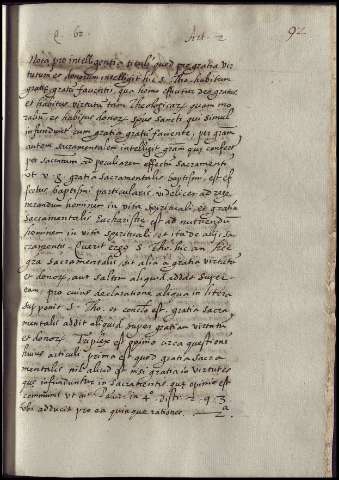 Q. 62 Art. 2 92
Nota pro intelligentia tituli quod per gratia vir
tutum et donorum intelligit hic S. Tho. habitum
gratiæ gratũ facientis, qua homo efficitur deo gratus
et habitus virtutũ tam Theologicarũ quam mo
raliũ, et habitus donorũ spũs sancti qui simul
infundunt cum gratia gratũ faciente, per gram
autem sacramentalem intelligit gram quę confert
per sacmtum ad peculiarem effectũ sacramenti
ut v. g. gratia sacramentalis baptismi est ef
fectus baptismi particularis videlicet ad rege
nerandum hominem in vita spirituali, et gratia
sacramentalis Eucharistię est ad nutriendũ
hominem in vita spirituali, et ita de alijs sa
cramentis. Querit ergo S. Tho. hic an hęc
gra sacramentalis sit alia a gratia virtutũ
et donorũ, aut saltem aliquid addat super
eam. pro cuius declaratione aliqua in litera
supponit S. Tho. et conclo est. gratia sacra
mentalis addit aliquid super gratiam virtutũ
et donorũ. Tuplex est opinio circa questionẽ
huius articuli prima est quod gratia sacra
mentalis nihil aliud est nisi gratia in virtutes
quę infunduntur in sacramentis quę opinio est
communis ut in 4º disti. 1 q. 3
ubi adducit pro ea quinque rationes. 2ª